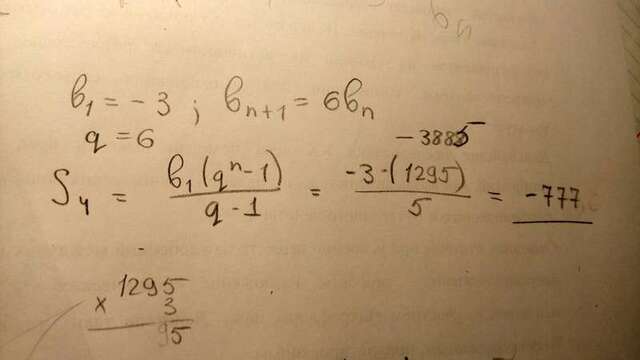 b₁ = - 3 ; bₙ₊₁ = 6bₙ
q = 6
- 3885
S₄ = b₁(qⁿ - 1) / q - 1 = -3·(1295) / 5 = -777
1295
× 3
95